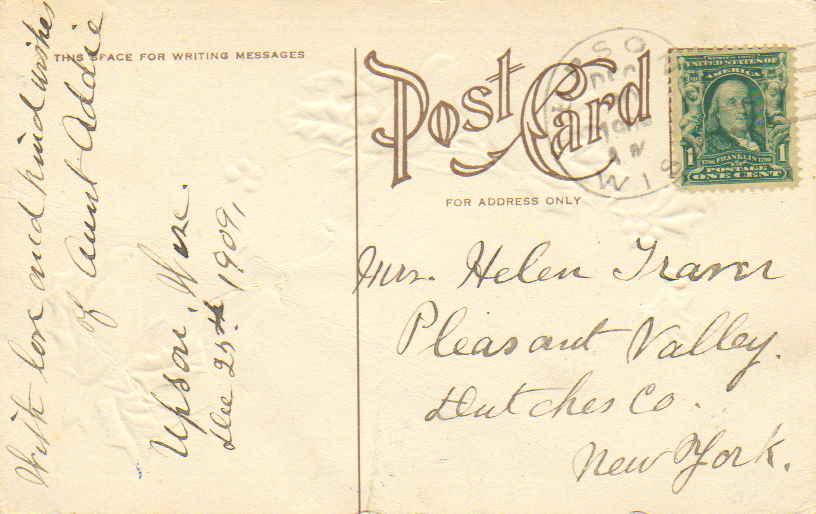 THIS SPACE FOR WRITING MESSAGES
With love and kind wishes
of Aunt Addie
Upson, Wisc.
Dec 25th 1909,
Post Card
FOR ADDRESS ONLY
UPSON
DEC
WIS
UNITED STATES OF
AMERICA
1 FRANKLIN 1
POSTAGE
ONE CENT
Mrs. Helen Traver
Pleasant Valley.
Dutches Co.
New York.